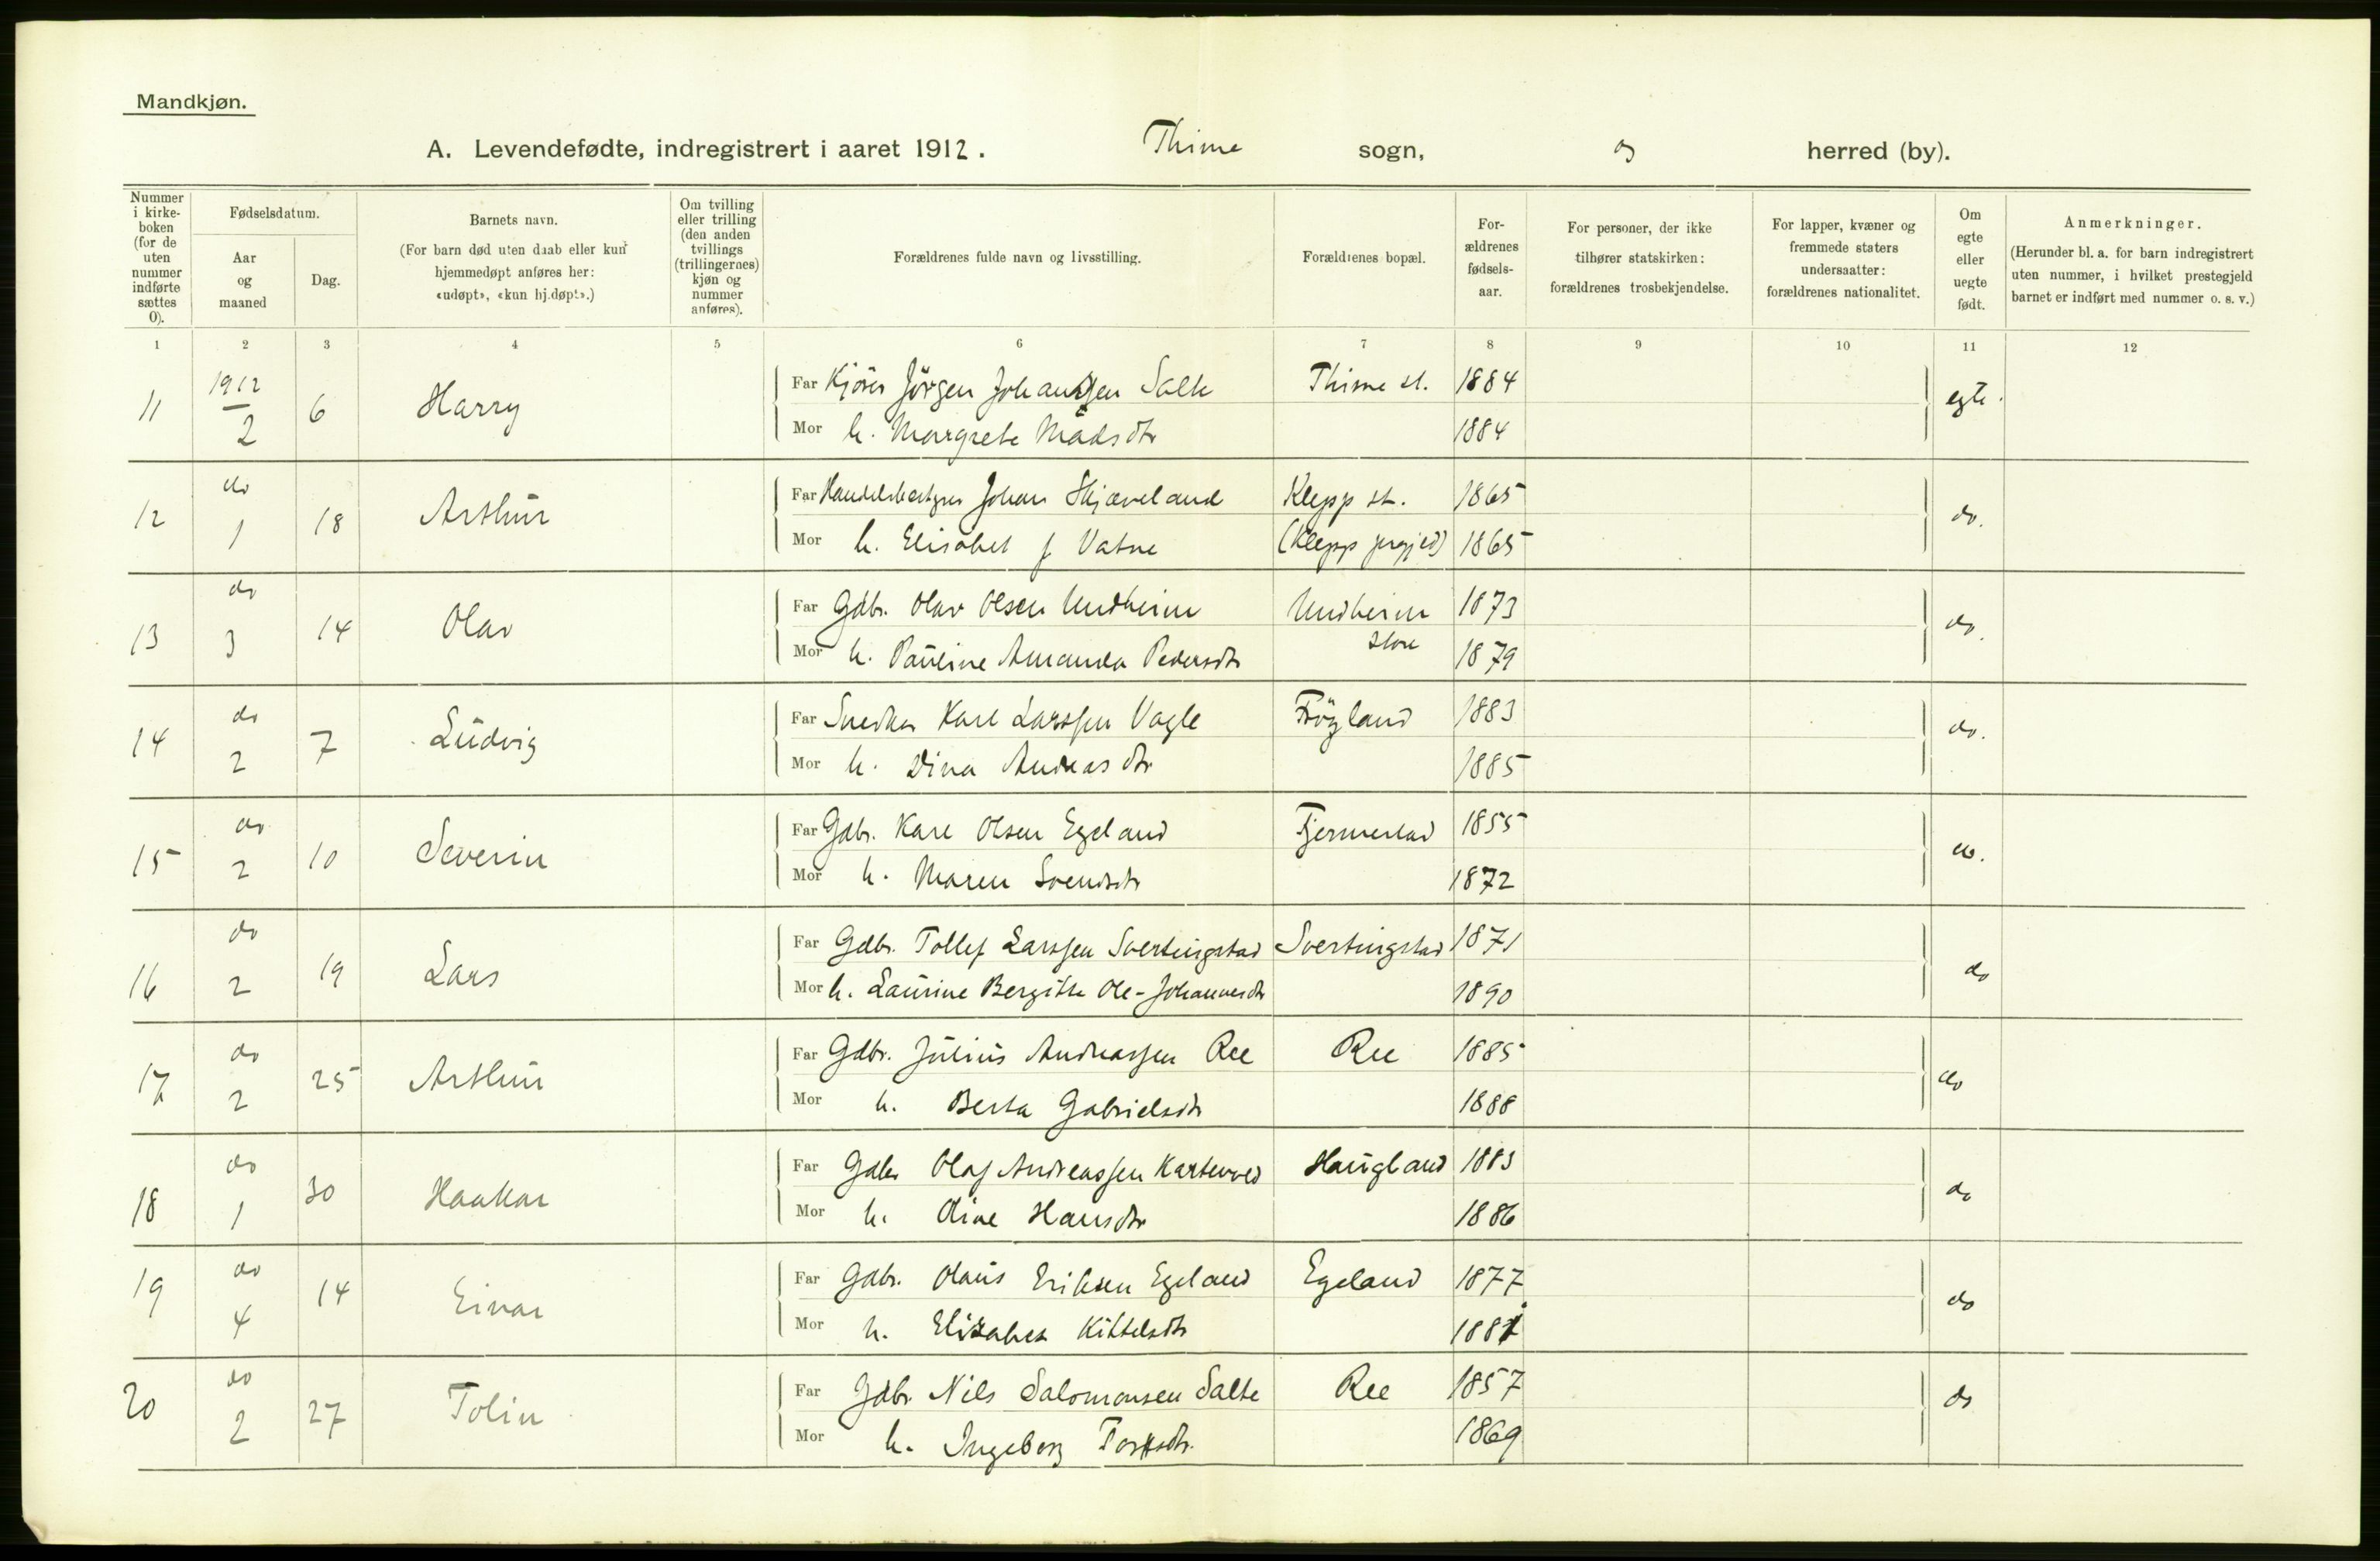 Mandkjøn.
A. Levendefødte, indregistrert i aaret 1912. Thime sogn, og herred (by).
Nummer i kirke-boken (for de uten nummer indførte sættes 0).
Fødselsdatum.
Aar og maaned
Dag.
Barnets navn.
(For barn død uten daab eller kun hjemmedøpt anføres her: «udøpt», «kun hj.døpt».)
Om tvilling eller trilling (den anden tvillings (trillingernes) kjøn og nummer anføres).
Forældrenes fulde navn og livsstilling.
Forældrenes bopæl.
For-ældrenes fødsels-aar.
For personer, der ikke tilhører statskirken: forældrenes trosbekjendelse.
For lapper, kvæner og fremmede staters undersaatter: forældrenes nationalitet.
Om egte eller uegte født.
Anmerkninger.
(Herunder bl. a. for barn indregistrert uten nummer, i hvilket prestegjeld barnet er indført med nummer o. s. v.)
1 2 3 4 5 6 7 8 9 10 11 12
11 1912 2 6 Harry Far Kjører Jörgen Johanssen Salte Thime st. 1884 egte.
Mor h. Margrete Madsdtr 1884
12 do 1 18 Arthur Far Handelsbestyrer Johan Skjæveland Klepp st. 1865 do.
Mor h. Elisabet f Vatne (Klepp prgjed) 1865
13 do 3 14 Olav Far Gdbr. Olav Olsen Undheim Undheim 1873 do.
Mor h. Pauline Amanda Pedersdtr store 1879
14 do 2 7 Ludvig Far Snedker Karl Larssen Vagle Frøyland 1883 do.
Mor h. Dina Andreasdtr 1885
15 do 2 10 Severin Far Gdbr. Karl Olsen Egeland Fjermestad 1855 do.
Mor h. Maren Svendsdtr 1872
16 do 2 19 Lars Far Gdbr. Tollef Larssen Svertingstad Svertingstad 1871 do
Mor h. Laurine Bergitte Ole-Johannesdtr 1890
17 do 2 25 Arthur Far Gdbr. Julius Andreassen Ree Ree 1885 do
Mor h. Berta Gabrielsdtr 1888
18 do 1 30 Haakon Far Gdbr Olaf Andreassen Kartevold Haugland 1883 do
Mor h. Oline Hansdtr 1886
19 do 4 14 Einar Far Gdbr. Olaus Eriksen Egeland Egeland 1877 do
Mor h. Elisabet Kittelsdtr 1881
20 do 2 27 Tolin Far Gdbr Nils Salomonsen Salte Ree 1857 do
Mor h. Ingeborg 1869